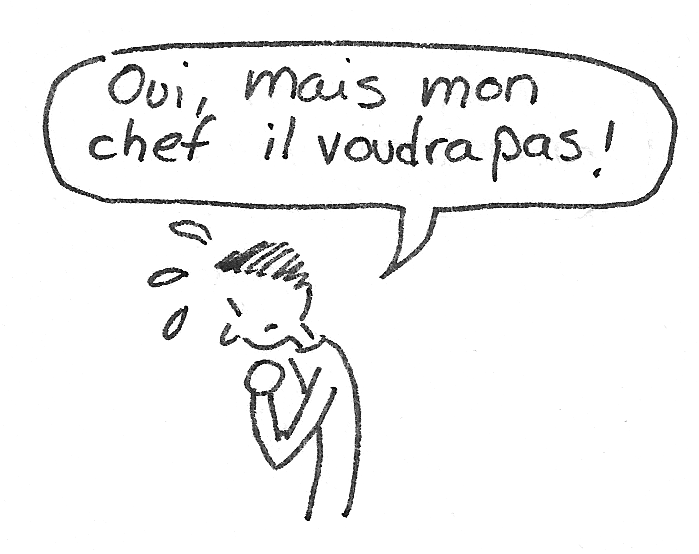 Oui, mais mon
chef il voudra pas!